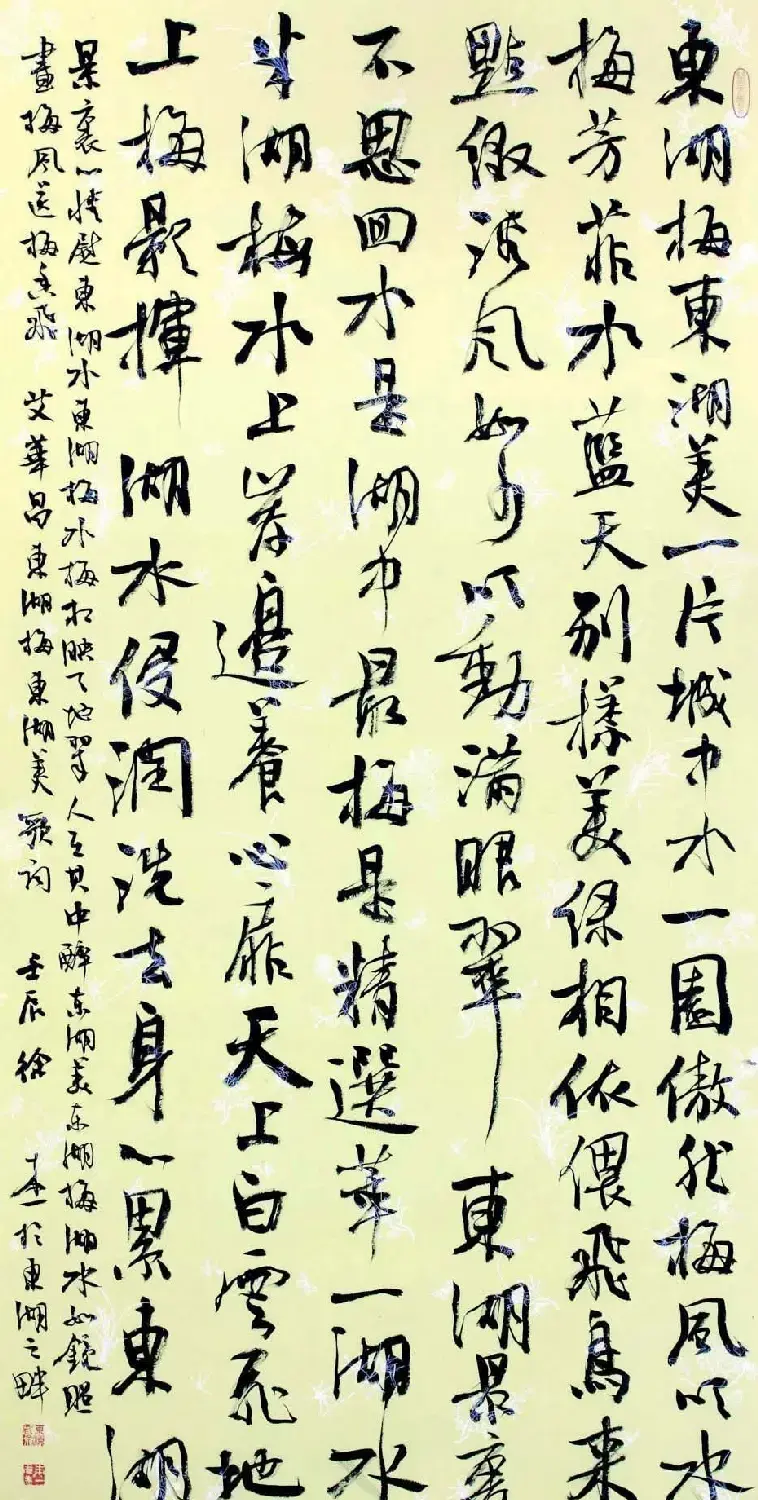 東湖梅東湖美一片城中水一園傲然梅風吹水
梅芳菲水藍天别樣美係相依偎飛鳥来
點緻风如吹動滿眼翠 東湖景裏
不思回水是湖中最梅是精選萃一湖水
半湖梅水上岸邊養心扉天上白雲飛地
上梅影揮 湖水侵潤洗去身心累東湖
景裏心情慰東湖水東湖梅水梅相映天地翠人在其中醉东湖美东湖梅湖水如鏡照
畫梅風送梅香飛 艾華昌東湖梅東湖美歌詞 壬辰徐本一於東湖之畔